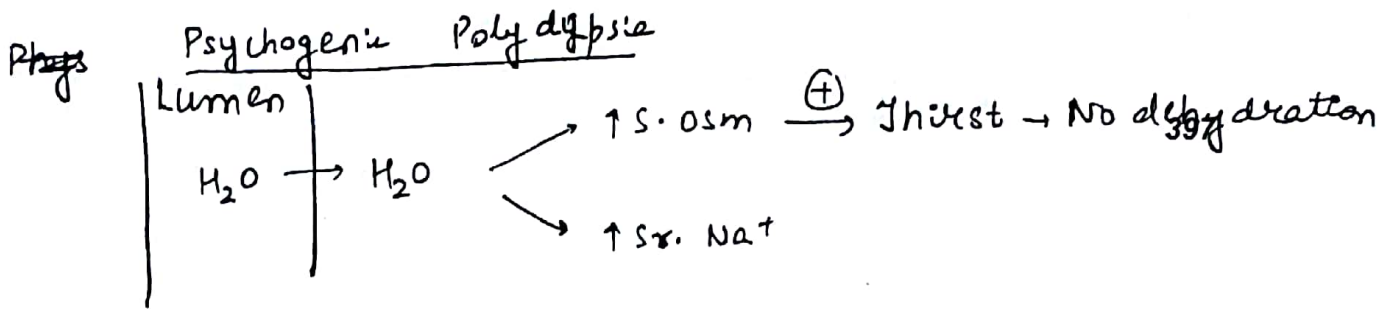 Phys Psychogenic Polydypsia
Lumen
↑ S. Osm ⊕→ Thirst → No dehydration
397
H₂O → H₂O
↑ Sr. Na⁺